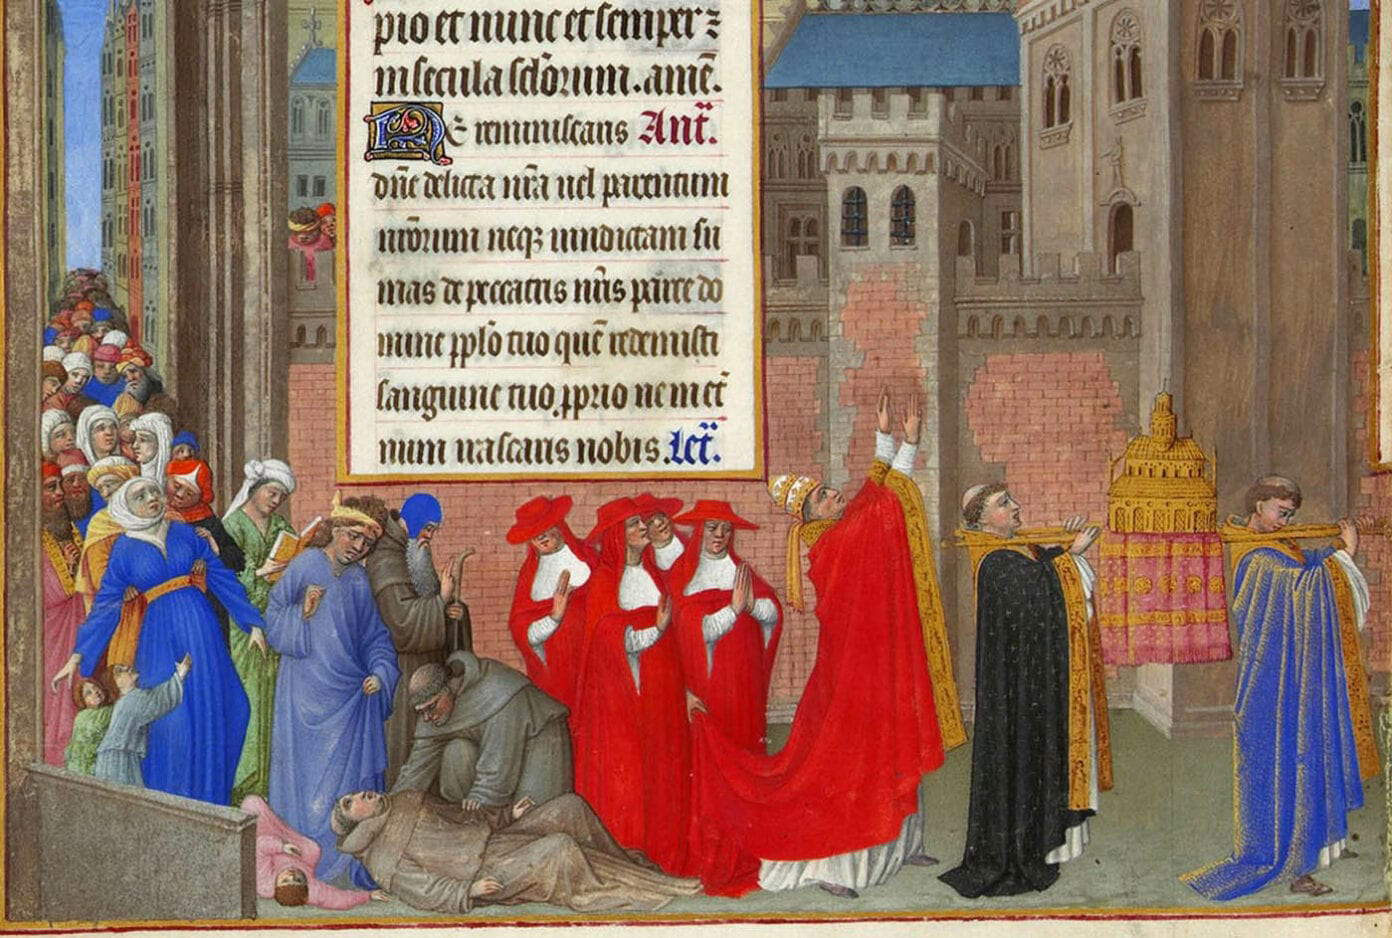 pio et nunc et semper ꝛ
in secula sc̄lorum. amē.
Ne reminiscaris Ant̄.
dn̄e delicta nr̄a uel parentum
nr̄orum neqꝫ uindictam su
mas de peccatis nr̄is parce do
mine pplō tuo quē redemisti
sanguine tuo pprio ne in et̄
num irascaris nobis. Lct̄.